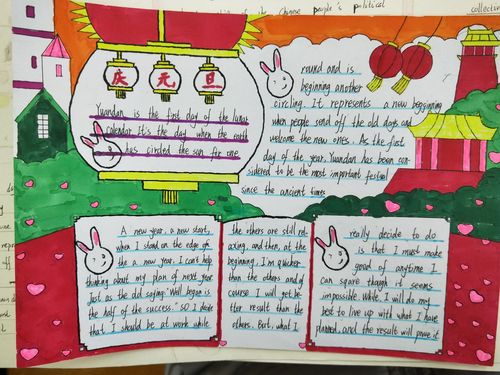 Chinese people's political
collectiv
庆 元 旦
Yuandan is the first day of the lunar
calendar. It's the day when the earth
has circled the sun for one
round and is
beginning another
circling. It represents a new begginning
when people send off the old days and
welcome the new ones. As the first
day of the year, Yuandan has been con-
sidered to be the most important festival
since the ancient times
A new year, a new start,
when I stand on the edge of
the a new year. I can't help
thinking about my plan of next year.
Just as the old saying: "Well began is
the half of the success." So I decide
that I should be at work while
the others are still rel-
axing, and then, at the
beginning, I'm quicker
than the others and of
course I will get be-
tter result than the
others. But, what I
really decide to do
is that I must make
good of anytime I
can spare though it seems
impossible. While, I will do my
best to live up with what I have
planned, and the result will prove it